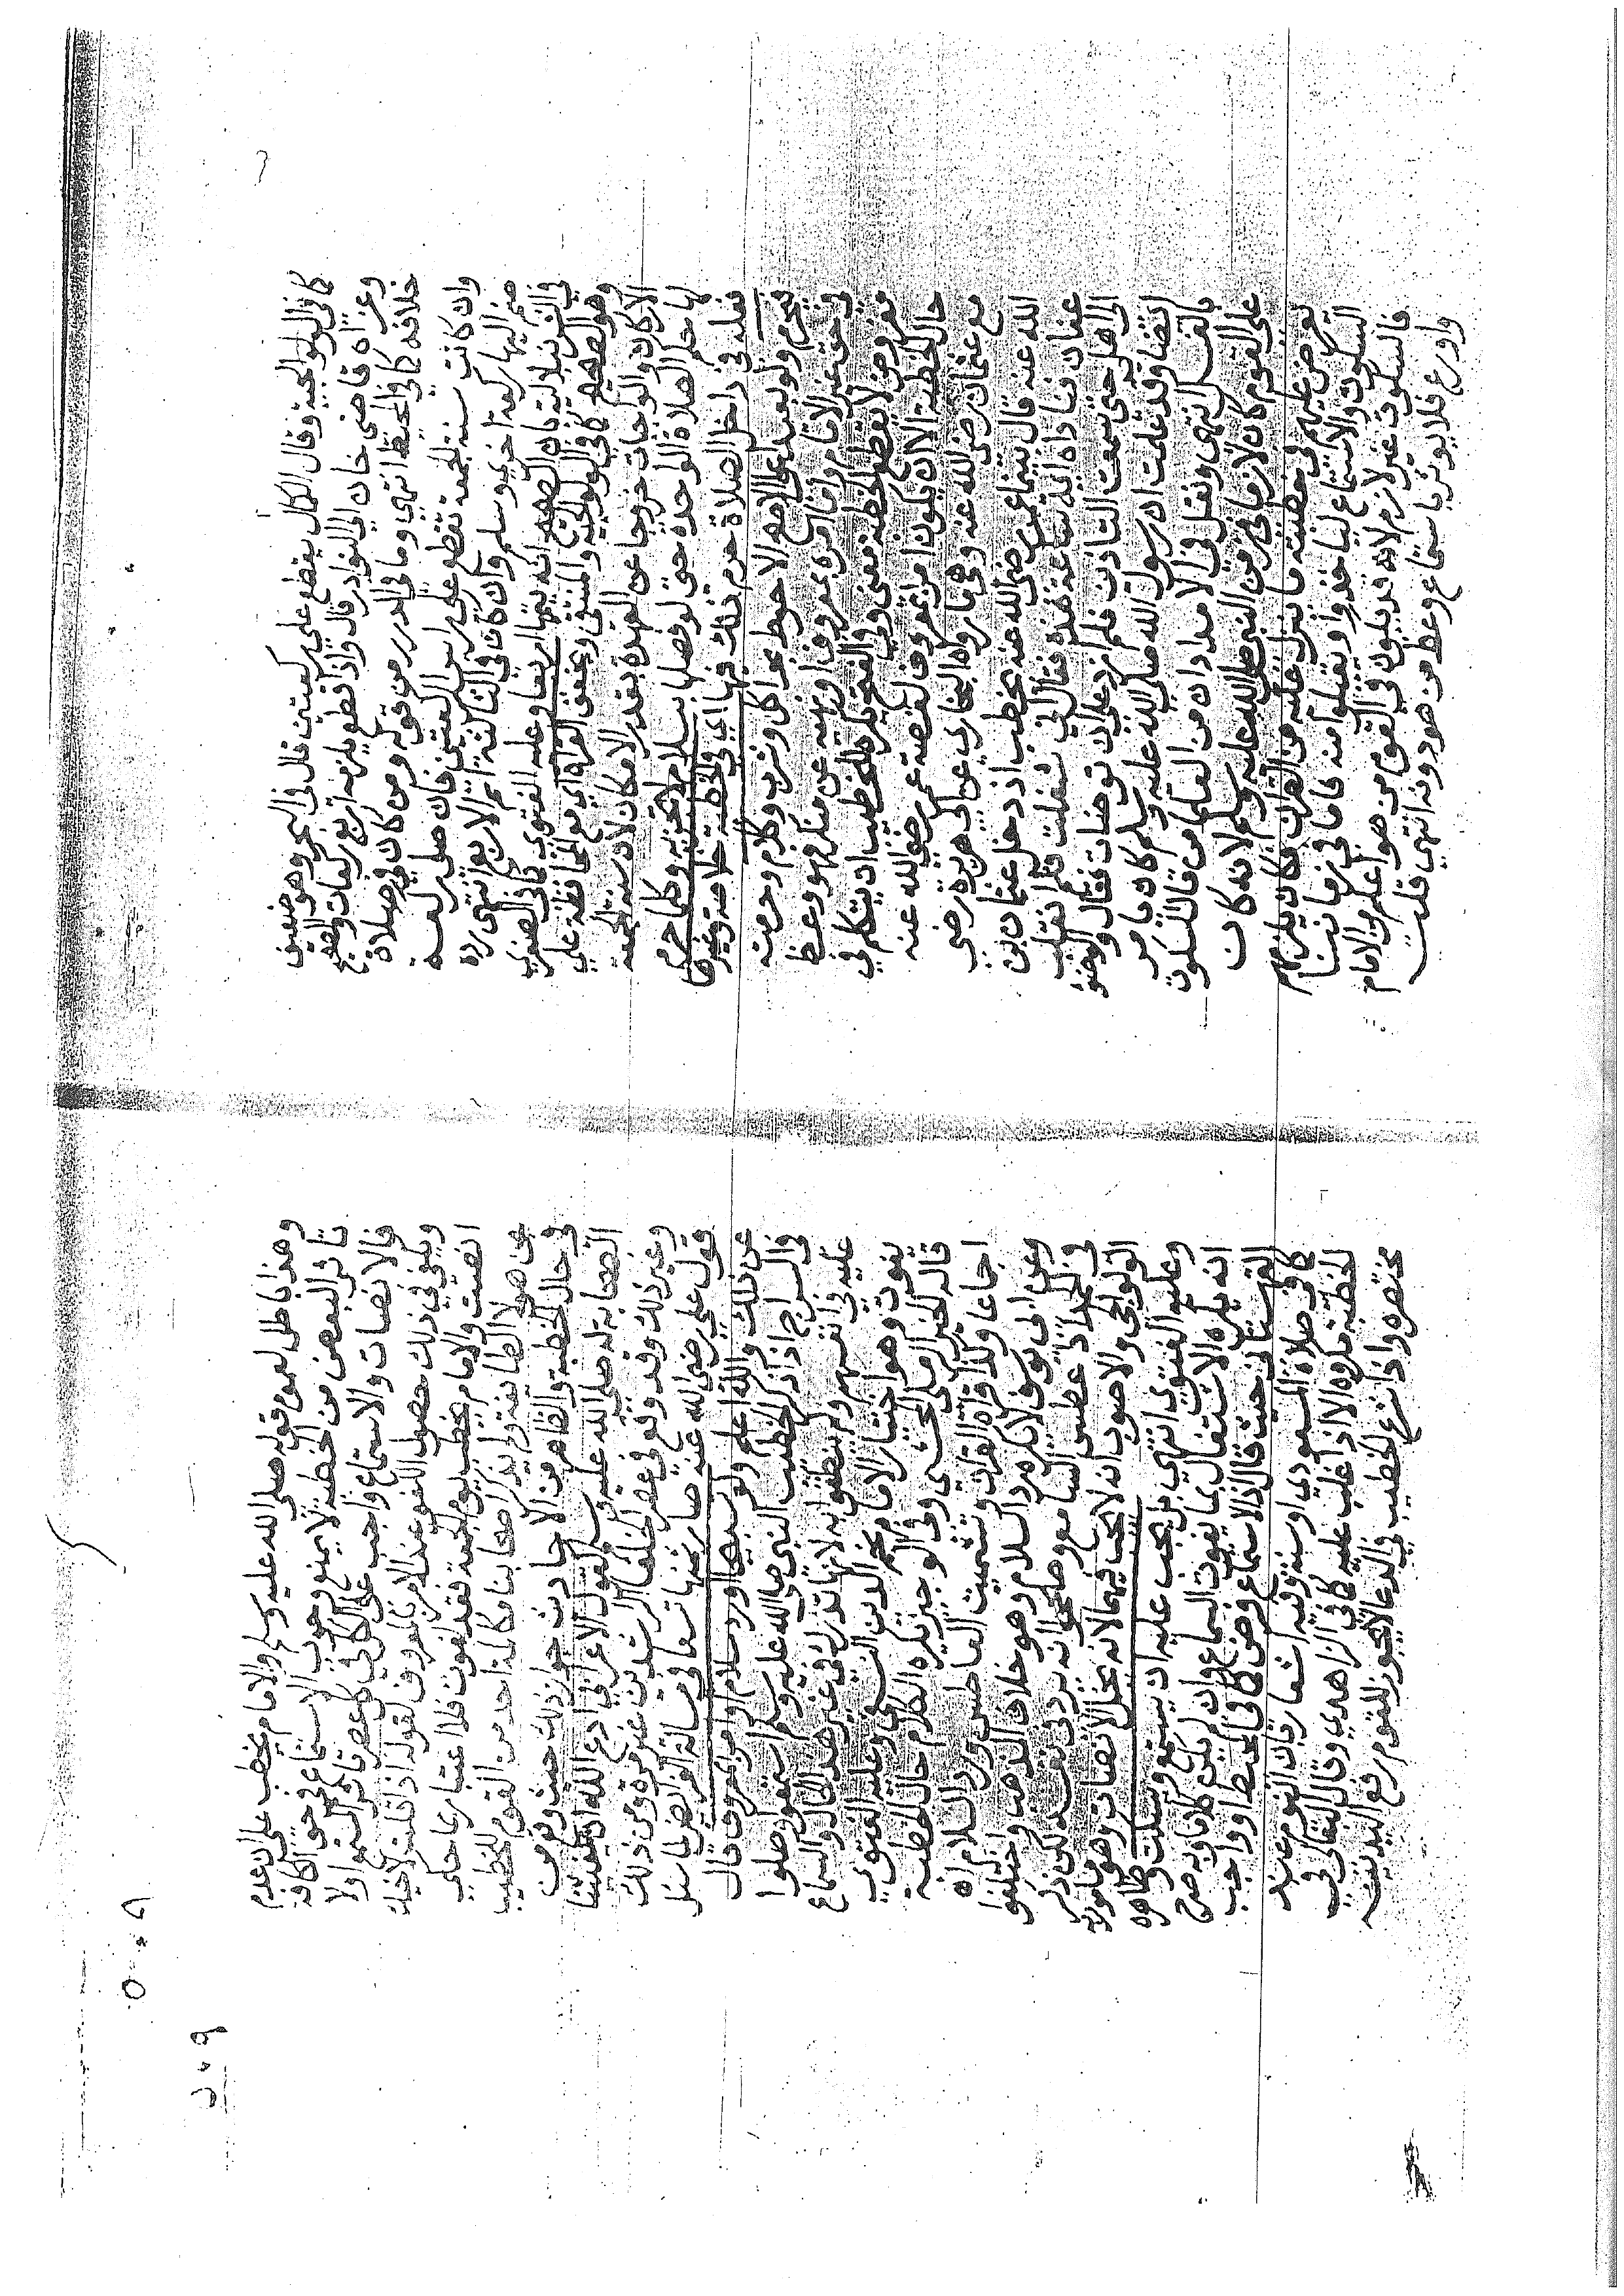 كما في الولوالجية وقال الكمال يقطع على ركعتين قال في البحر وهو ضعيف
وعزاه قاضي خان الى النوادر قال واذا قطع يلزمه اربع ركعات والصحيح
خلافه كما في المحيط انتهى وما في الدرر من قوله ومن كان في صلاة
وان كانت سنة الجمعة تقطع على راس الركعتين فان صلى ركعة
ضم اليها ركعة اخرى وسلم وان كان في الثالثة اتم الاربع انتهى رده
في الشرنبلالية بان الصحيح انه يتمها اربعا وعليه الفتوى كما في الصغرى
وهو الصحيح كما في الولوالجية والمبتغى ويخفف القراة اي مع المحافظة على
الاركان والواجبات خروجا عن العهدة بقدر الامكان لان سنة الجمعة
لها حكم الصلاة الواحدة حتى لو فصلها بسلام لا تجزيه وكلما حرم
فعله في داخل الصلاة حرم ذلك فيها اي في الخطبة خلاصة وغيرها
فيحرم ولو بعيدا على الاصح الاحوط بحر اكل وشرب وكلام وحرمته
في حق غير الامام واما امره بمعروف او نهيه عن منكر فهو وعظ
مفروض لا يقطع الخطبة معنى وفي الفتح يكره للخطيب ان يتكلم في
حال الخطبة الا ان يكون امرا بمعروف لقصة عمر رضي الله عنه
مع عثمان رضي الله عنه وهي ما رواه البخاري عن ابي هريرة رضي
الله عنه قال بينما عمر رضي الله عنه يخطب اذ دخل عثمان بن
عفان فناداه اية ساعة هذه فقال اني شغلت فلم انقلب
الى اهلي حتى سمعت التاذين فلم ازد على ان توضات فقال والوضوء
ايضا وقد علمت ان رسول الله صلى الله عليه وسلم كان يامر
بالغسل انتهى ونقل في الامداد ان من العلماء من قال السكوت
على القوم كان لازما في زمن النبي صلى الله عليه وسلم لانه كان
يعرض عليهم في خطبته ما نزل عليه من القران فكان يلزمهم
السكوت والاستماع ليأخذوا ويقبلوا منه فاما في زماننا
فالسكوت غير لازم لانه قد يكون في القوم من هو اعلم من الامام
واورع فلا يوثر باستماع وعظ من هو دونه انتهى قلت
وهذا باطل لعموم قوله صلى الله عليه وسلم والامام يخطب على ان عدم
تاثر البعض من الخطبة لا يمنع وجوب الاستماع في حق الكافة
فالانصات والاستماع واجب على الكل في كل عصر تاثر السمع اولا
ويكفي في ذلك حصول اللغو عند الامر بالمعروف لقوله اذا قلت لاخيك
انصت والامام يخطب يوم الجمعة فقد لغوت فلا اعتبار بما حكي
عن هولا الطائفة ولم يذكر اصحابنا مكالمة احد من القوم للخطيب
في حال الخطبة والظاهر من الاحاديث جواز ذلك حيث وقع من
الصحابة له صلى الله عليه وسلم كقول الاعرابي ادع الله ان يغيثنا
وغير ذلك وقد وقع في عصر الخلفاء الراشدين غير مرة ومن ذلك
قول علي رضي الله عنه صار ثمنها تسعا في مسالة الفرايض لما سئل
عن ذلك والله اعلم ولو تسبيحا ورد سلام او امر بمعروف قال
في السراج اذا ذكر الخطيب النبي صلى الله عليه وسلم استمعوا وصلوا
عليه في انفسهم ولم ينطقوا به لانها تدرك في غير هذا الحال والسماع
يفوت وهو اختيار الامام نجم الدين النسفي وعليه الفتوى
قاله الخير الرملي المحشي وفي الوجيز يكره الكلام حال الخطبة
اجماعا وكذا قراة القران وتشميت العاطس ورد السلام اه
وعن ابي يوسف لا يكره رد السلام وهو خلاف المذهب واختلفوا
في الحمد اذا عطس السامع وصححوا انه يرد في نفسه لكن ذكر
الولوالجي والاصوب انه لا يجب فيهما لانه يخل الانصات وهو مامور به
وعليه الفتوى انتهى بل يجب عليه ان يستمع ويسكت وظاهره
انه يكره الاشتغال بما يفوت السماع وان لم يكن كلاما وبه صرح
القهستاني حيث قال اذ الاستماع فرض كما في المحيط او واجب
كما في صلاة المسعودي او سنة وفيه اشعار بان النوم عند
الخطبة مكروه الا اذا غلب عليه كما في الزاهدي وقال البقالي في
مختصره واذا شرع الخطيب في الدعا لا يجوز للقوم رفع اليدين